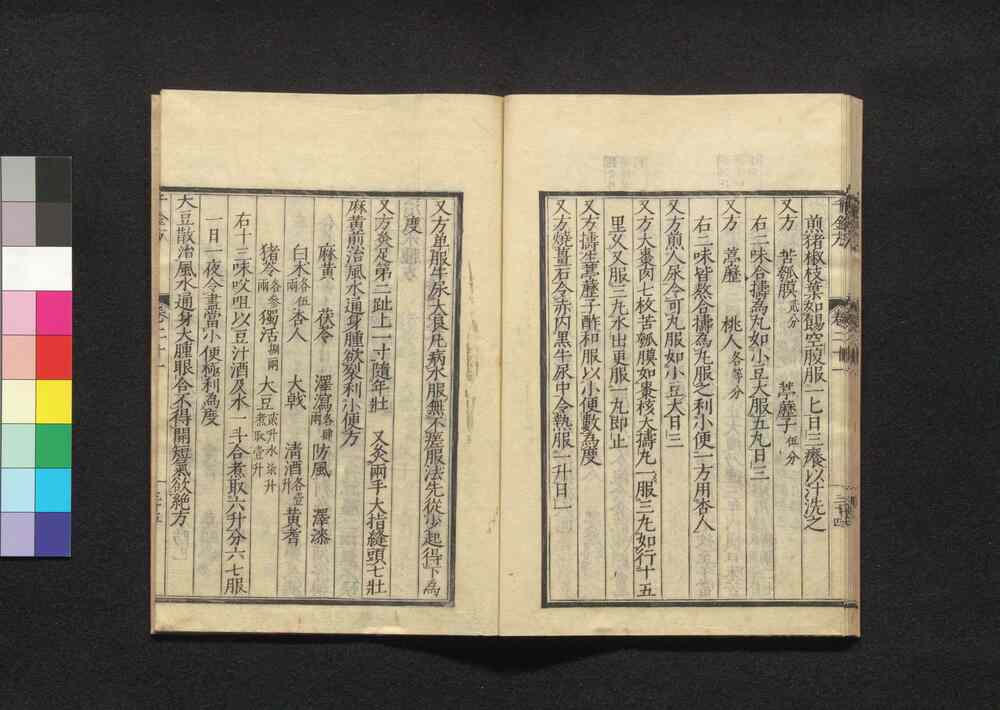 煎猪椒枝葉如餳空腹服一七日三癢以汁洗之
又方 苦瓠膜貳分 葶藶子伍分
右二味合擣為丸如小豆大服五丸日三
又方 葶藶 桃人各等分
右二味皆熬合擣為丸服之利小便一方用杏人
又方煎人尿令可丸服如小豆大日三
又方大棗肉七枚苦瓠膜如棗核大擣丸一服三丸如行十五
里又又服三丸水出更服一丸即止
又方擣生葶藶子酢和服以小便數為度
又方燒薑石令赤内黒牛尿中令熱服一升日一
又方单服牛尿大良凡病水服無不瘥服法先從少起得下為
度
又方灸足第二趾上一寸隨年壯 又灸兩手大指縫頭七壯
麻黄煎治風水通身腫欲裂利小便方
麻黄 茯苓 澤瀉各肆兩 防風 澤漆
白术各伍兩 杏人 大戟 清酒各壹升 黄耆
猪苓各參兩 獨活捌兩 大豆貳升水柒升煮取壹升
右十三味㕮咀以豆汁酒及水一斗合煮取六升分六七服
一日一夜令盡當小便極利為度
大豆散治風水通身大腫眼合不得開短氣欲絶方
千金方 卷二十一 三十五